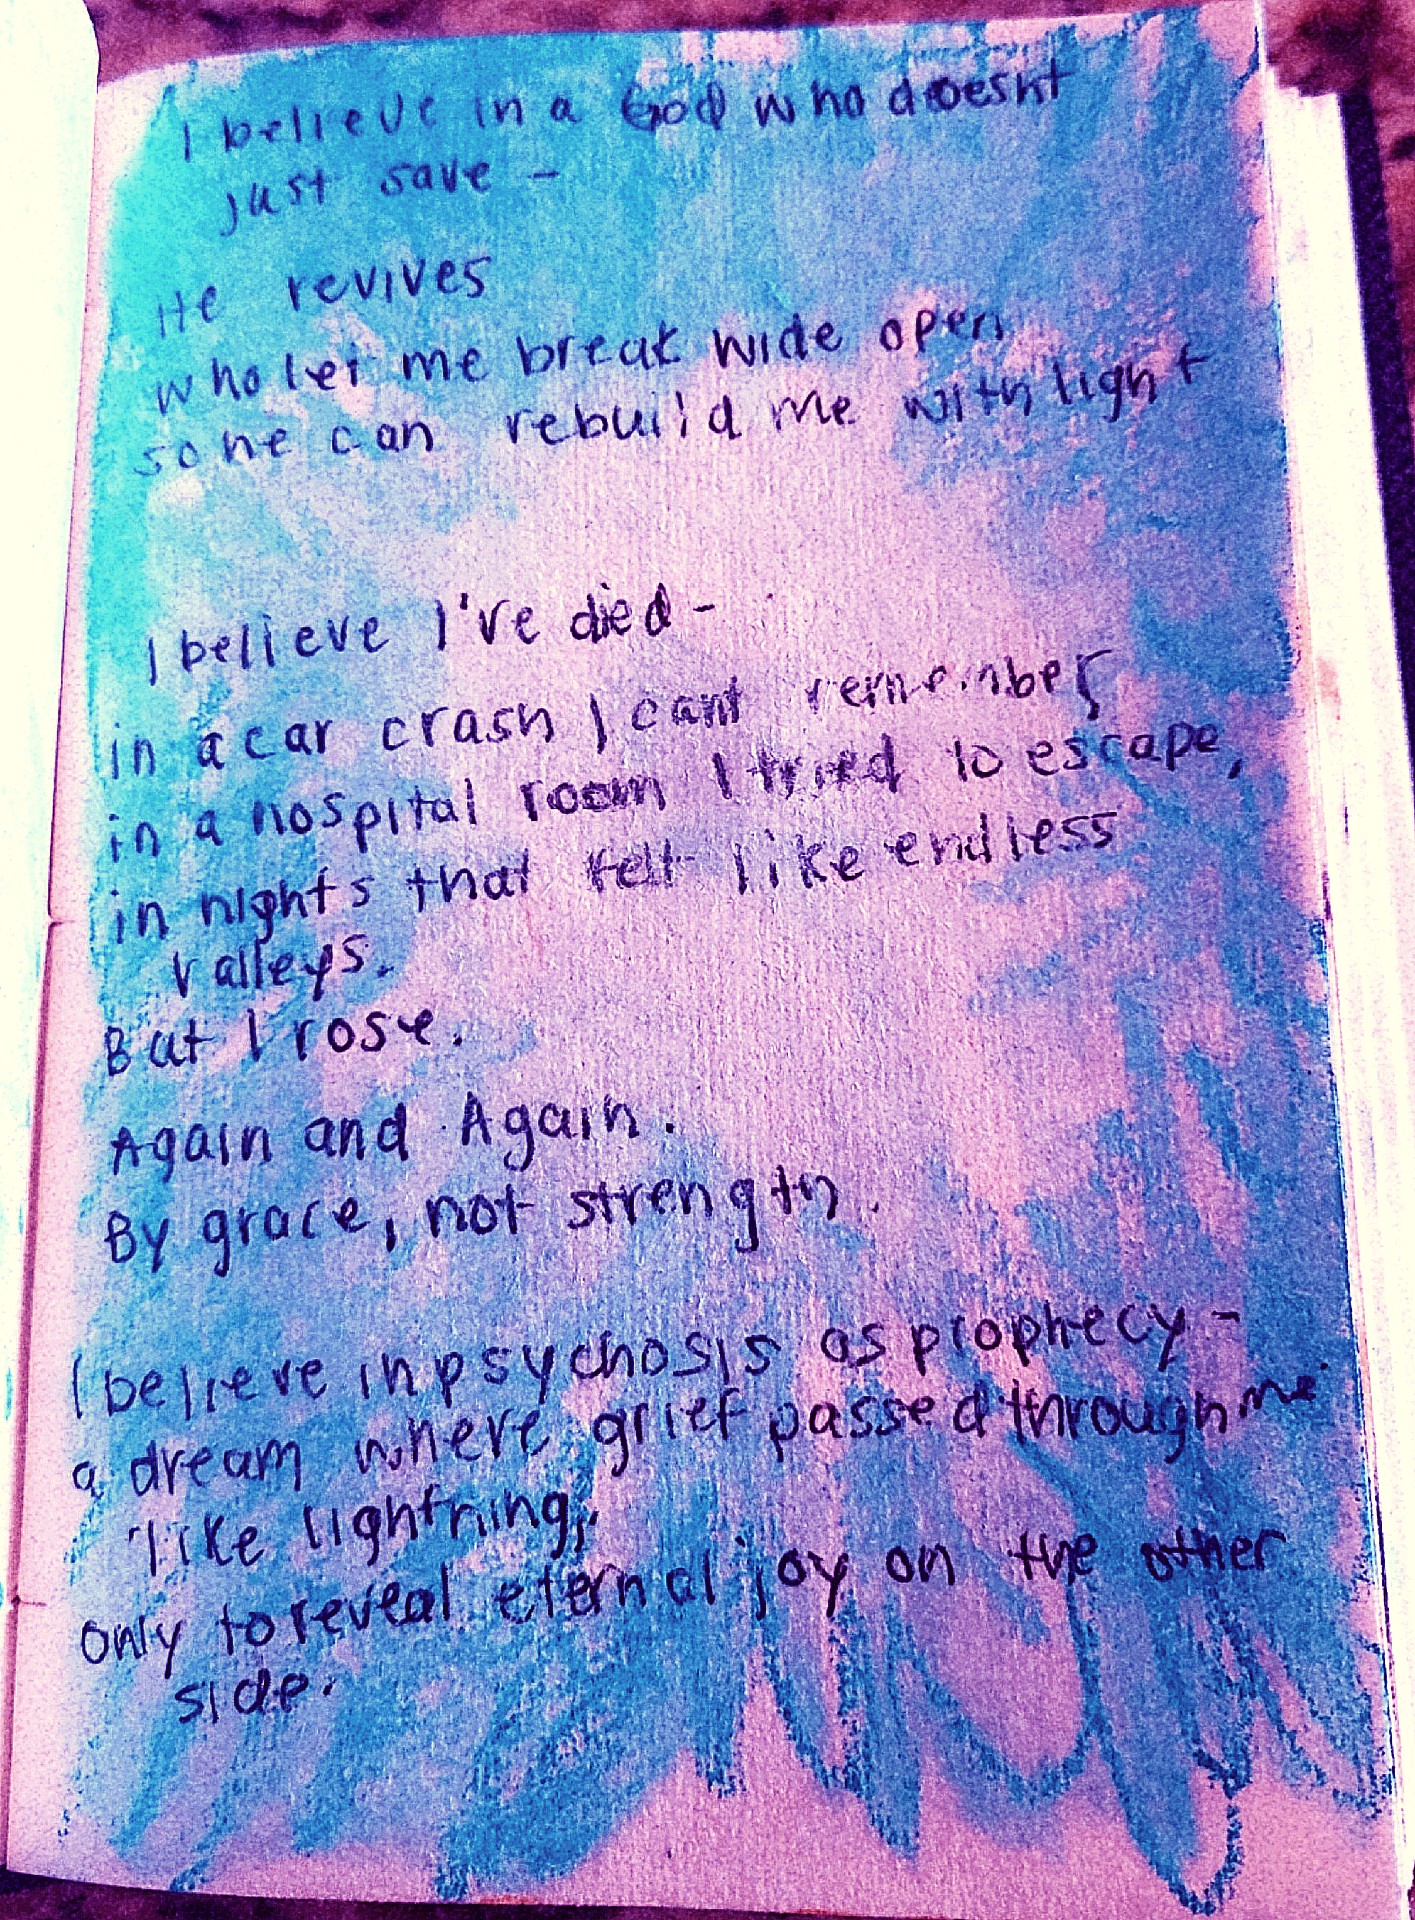 I believe in a God who doesnt
just save -
He revives
who let me break wide open
so he can rebuild me with light
I believe I've died -
in a car crash I cant remember
in a hospital room I tried to escape,
in nights that felt like endless
valleys.
But I rose.
Again and Again.
By grace, not strength.
I believe in psychosis as prophecy -
a dream where grief passed through me
like lightning,
only to reveal eternal joy on the other
side.